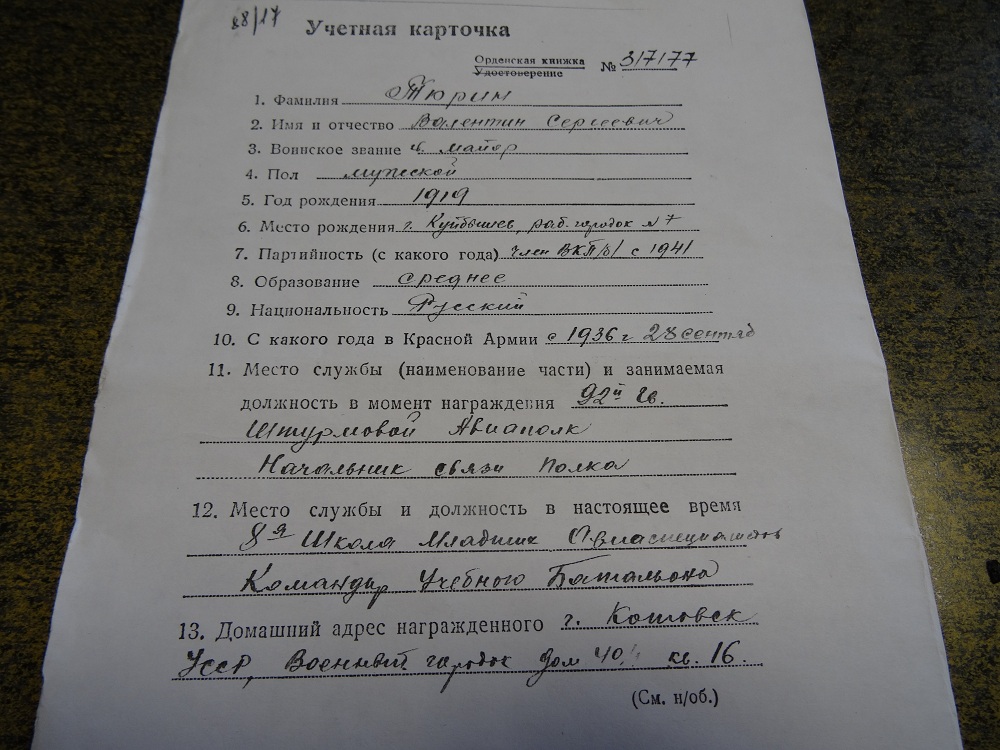 28/17
Учетная карточка
Орденская книжка
Удостоверение
№ 317177
1. Фамилия Тюрин
2. Имя и отчество Валентин Сергеевич
3. Воинское звание майор
4. Пол мужской
5. Год рождения 1919
6. Место рождения г. Куйбышев, раб. городок № 7
7. Партийность (с какого года) член ВКП/б/ с 1941
8. Образование среднее
9. Национальность Русский
10. С какого года в Красной Армии с 1936 г 28 сентяб
11. Место службы (наименование части) и занимаемая
должность в момент награждения 92й Гв.
Штурмовой Авиаполк
Начальник связи полка
12. Место службы и должность в настоящее время
8я Школа Младших
Командир Учебного Батальона
13. Домашний адрес награжденного г. Котовск
УССР, Военный городок дом 40, кв. 16.
(См. н/об.)